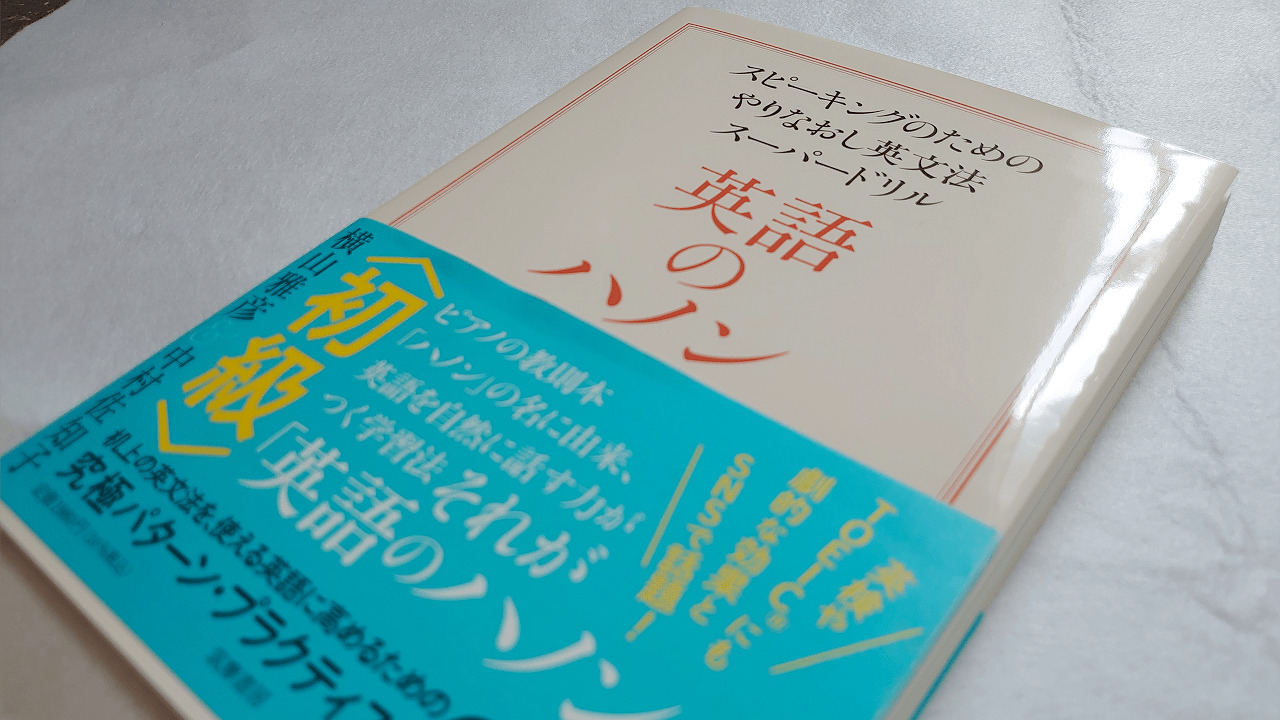 スピーキングのための
やりなおし英文法
スーパードリル
英語
の
ハノン
〈初級〉
横山雅彦 中村佐知子
ピアノの教則本
「ハノン」の名に由来、
英語を自然に話す力が
つく学習法 それが
「英語のハノン
英検や
TOEIC®にも
劇的な効果と
SNSで話題!
机上の英文法を、使える英語に高めるための
究極パターン・プラクティス
筑摩書房